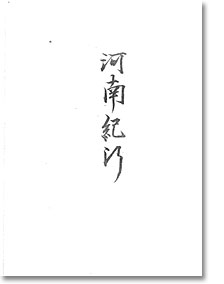 河南紀行